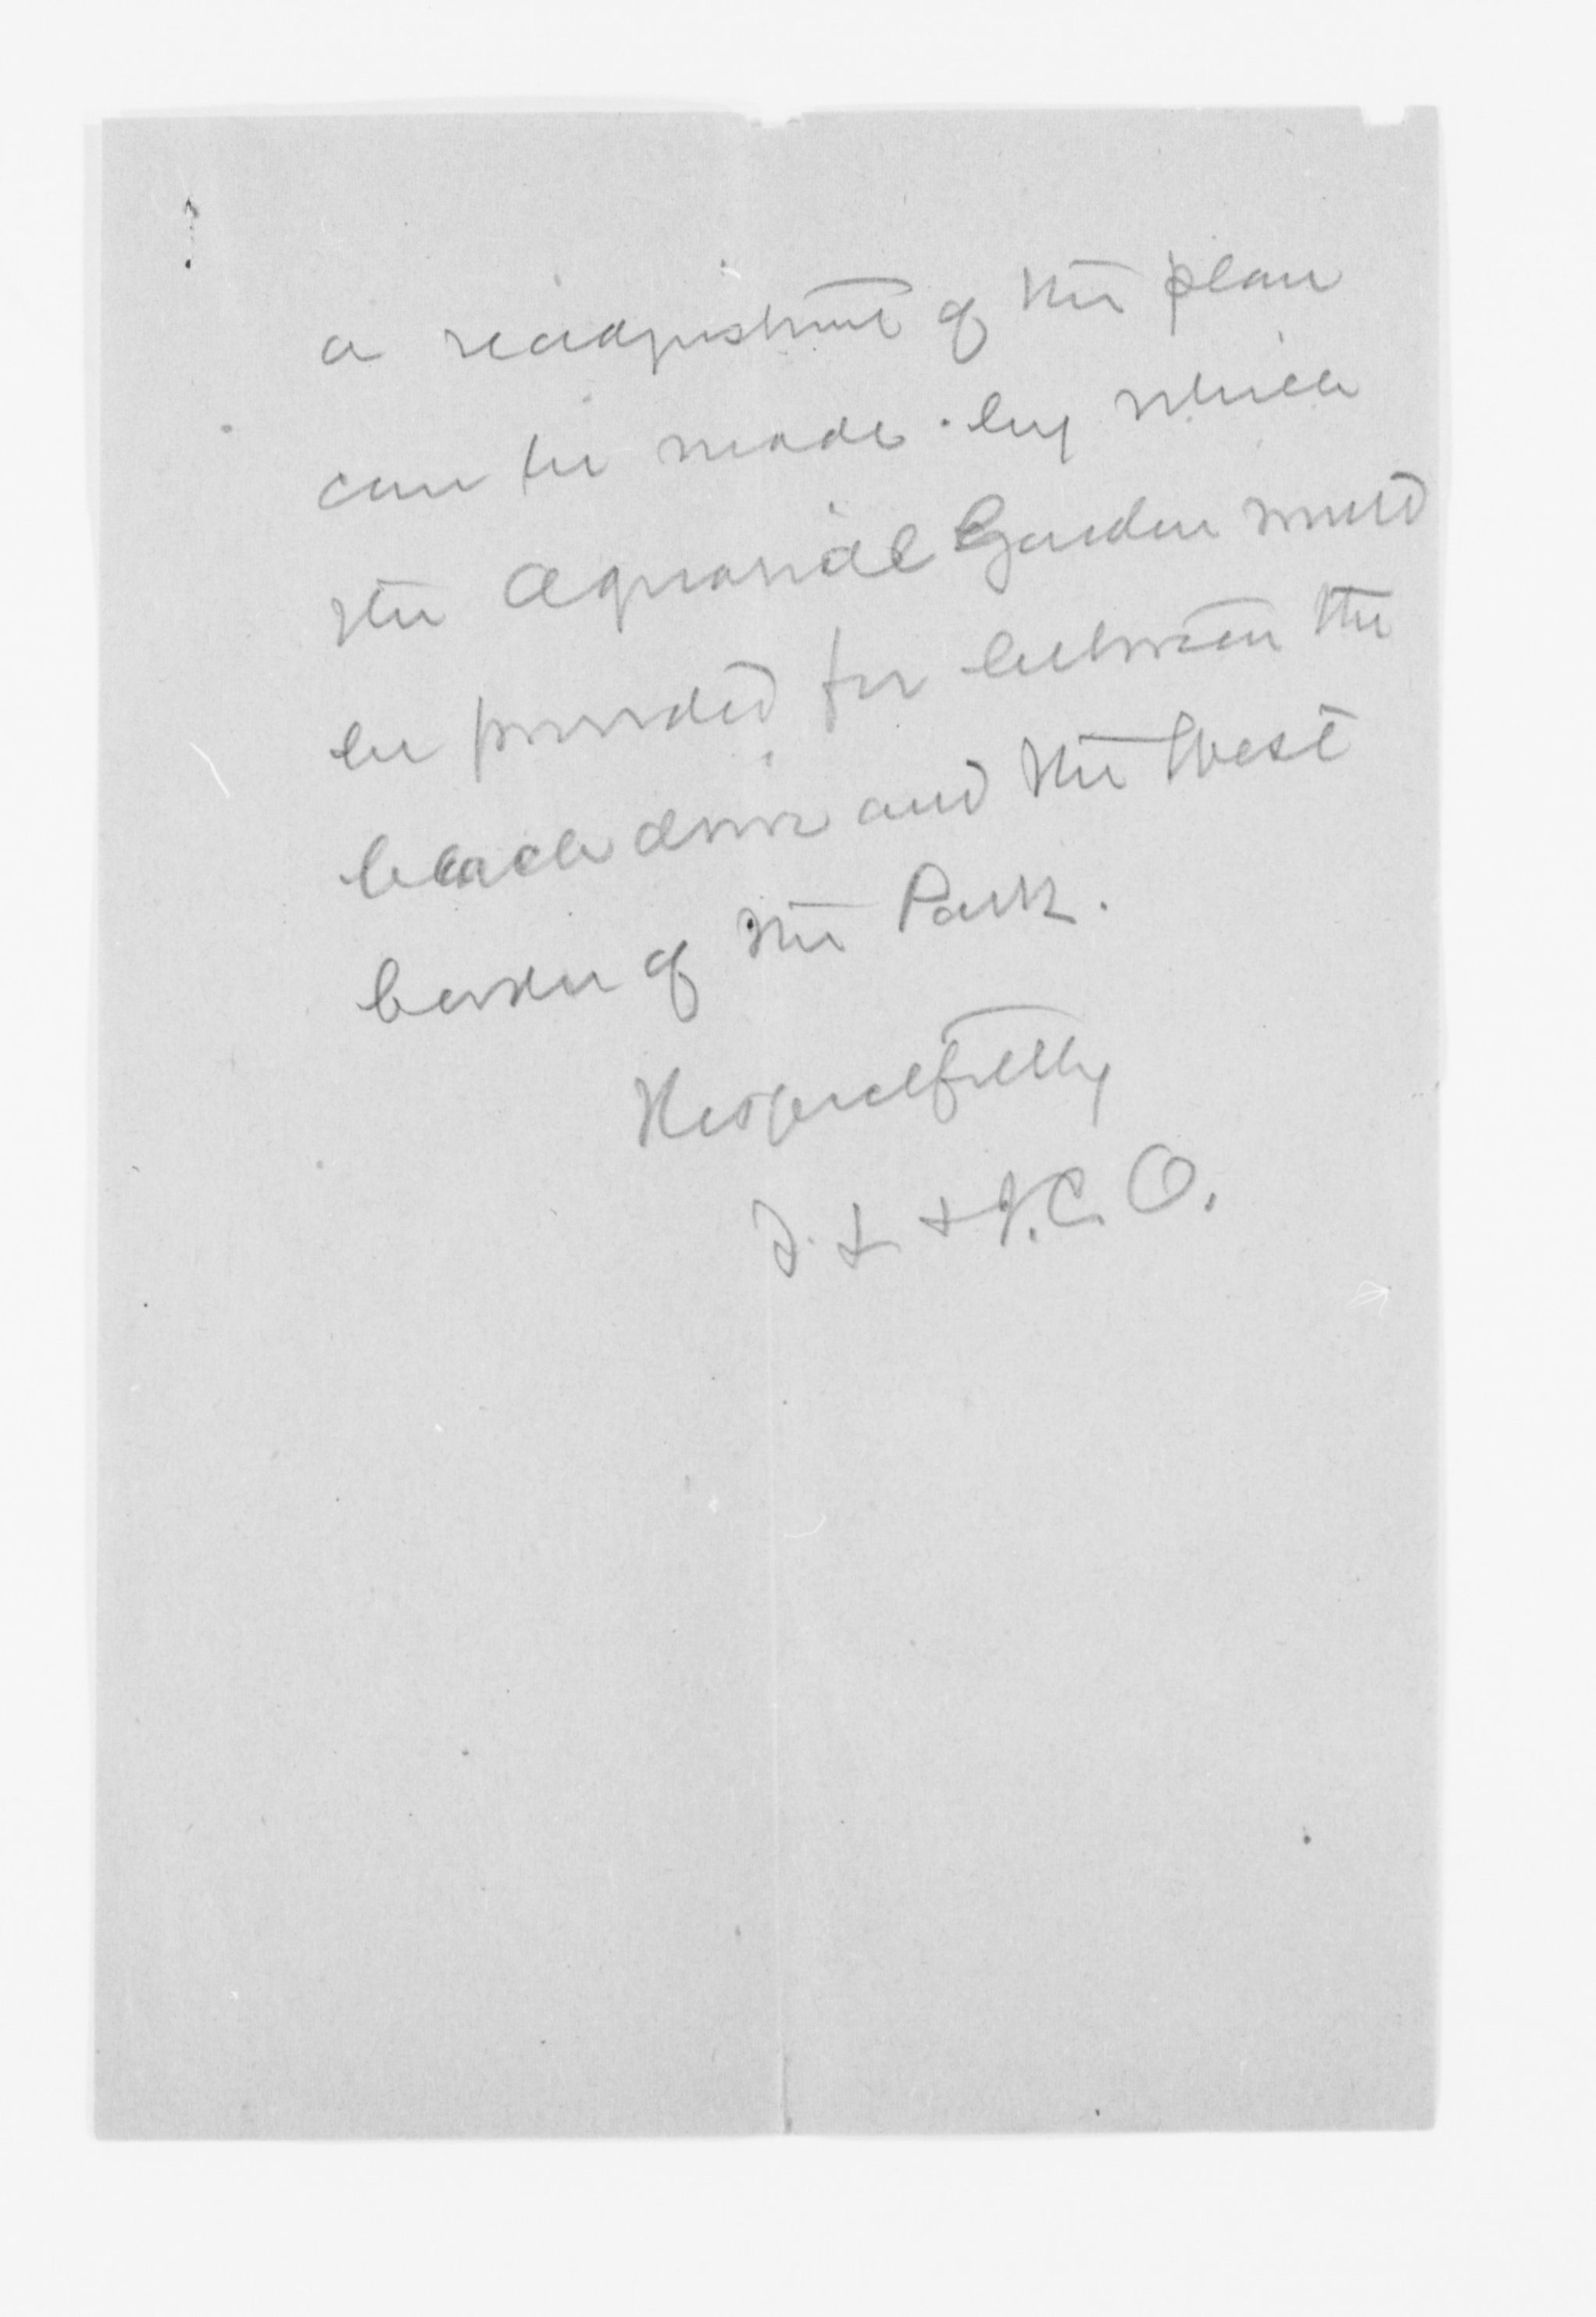 a readjustment of the plan
can be made by which
the Aquarial Garden would
be provided for between the
beach drive and the West
border of the Park.
Respectfully
F. L. & J. C. O.